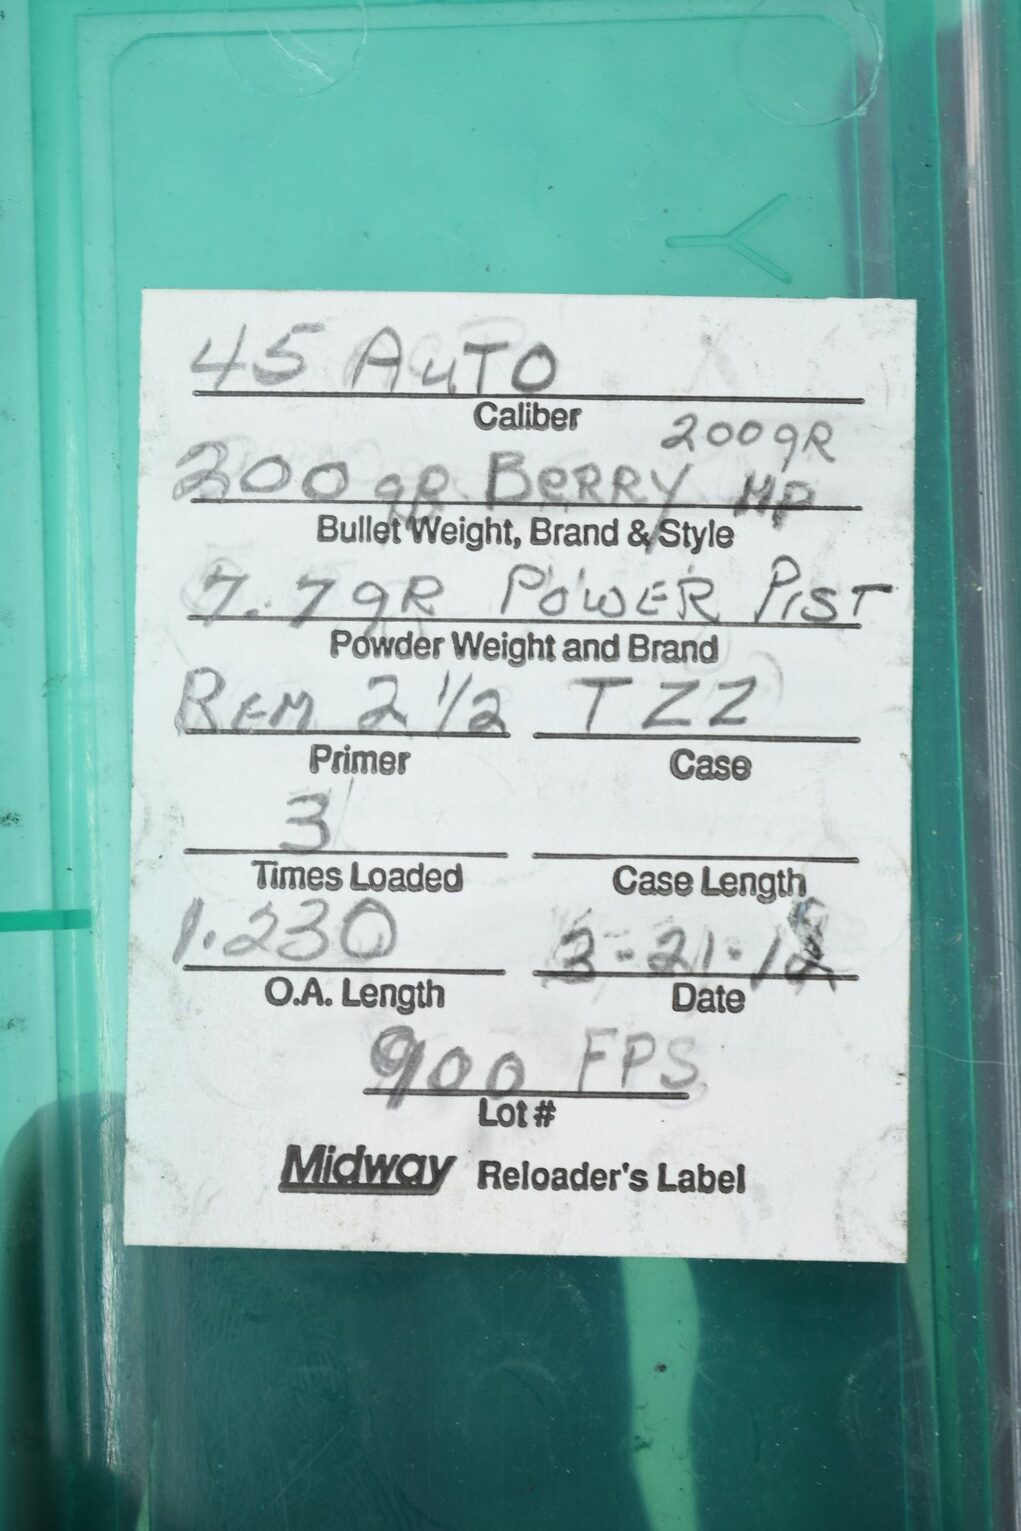 45 AuTO
Caliber
200 gR
200 gR BERRY HP
Bullet Weight, Brand & Style
7.7 gR POWER PIST
Powder Weight and Brand
REM 2 1/2 TZZ
Primer Case
3
Times Loaded Case Length
1.230 3-21-12
O.A. Length Date
900 FPS
Lot #
Midway Reloader's Label